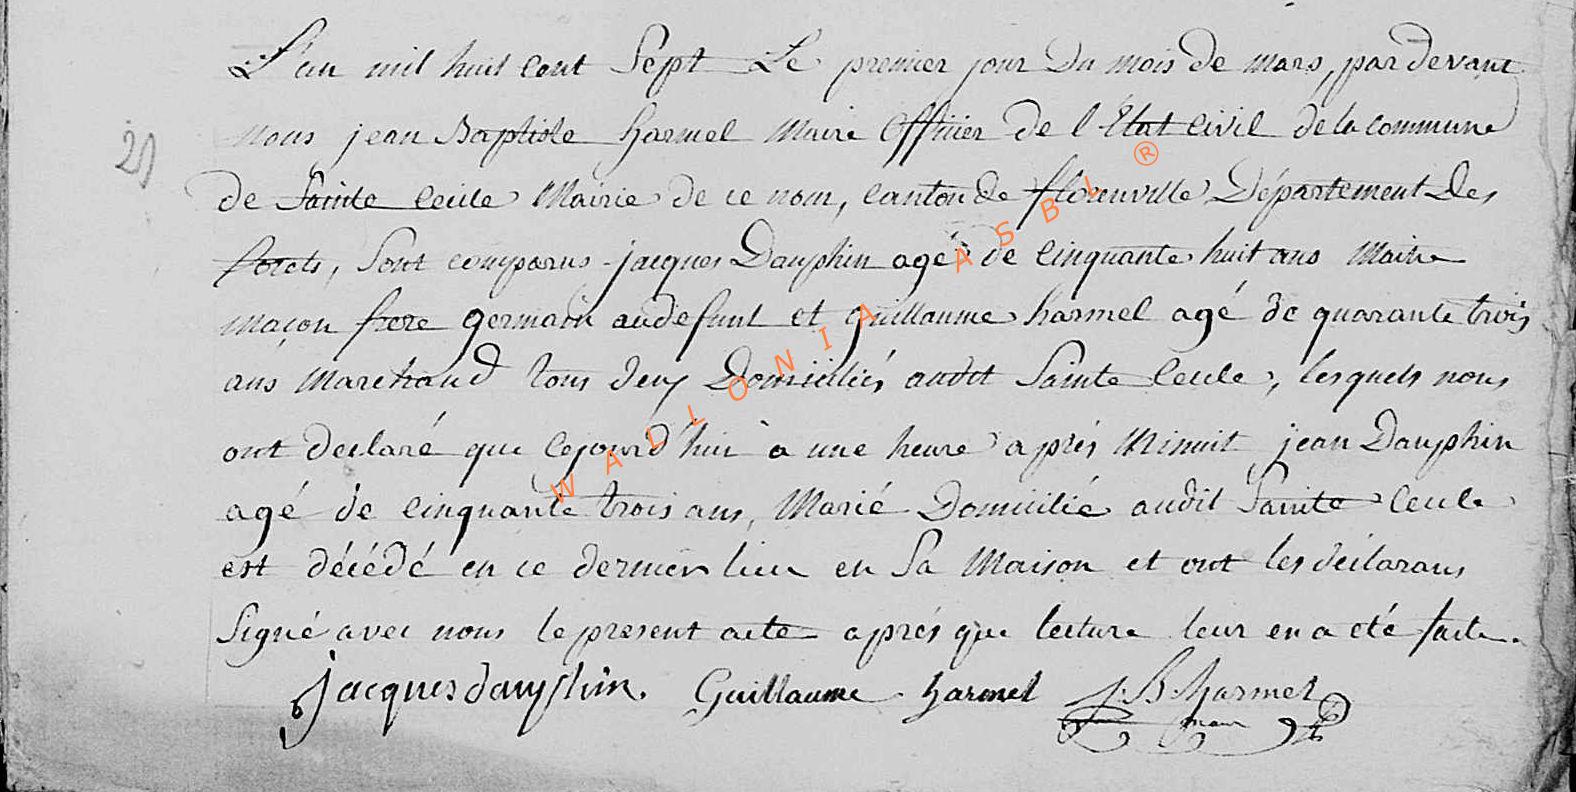 L'an mil huit cent Sept Le premier jour Du mois de mars, par devant
nous jean Baptiste harmel Maire Officier de l'Etat civil de la commune
de Sainte Cecile Mairie de ce nom, canton de florenville Département Des
forets, Sont comparus jacques Dauphin agé de cinquante huit ans Maitre
maçon frere germain au defunt et guillaume harmel agé de quarante trois
ans Marchand tous deux Domiciliés audit Sainte Cecile, lesquels nous
ont declaré que cejourd'hui a une heure aprés Minuit jean Dauphin
agé de cinquante trois ans, Marié Domicilié audit Sainte Cecile
est décédé en ce dernier lieu en Sa Maison et ont les déclarans
Signé avec nous le present acte aprés que lecture leur en a été faite.
jacques dauphin. Guillaume harmel J. B. harmel
maire
WALLONIA ASBL ®